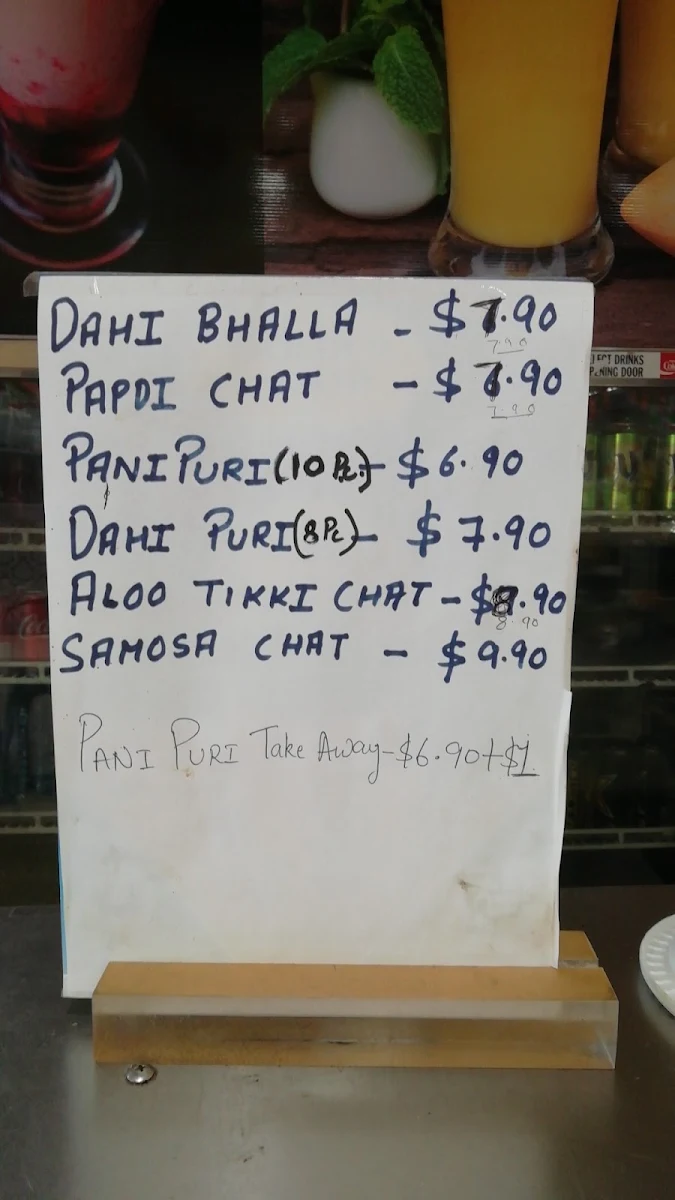 DAHI BHALLA - $7.90
7.90
PAPDI CHAT - $7.90
7.90
PANI PURI (10 Pc.) - $6.90
DAHI PURI (8 Pc) - $7.90
ALOO TIKKI CHAT - $8.90
8.90
SAMOSA CHAT - $9.90
PANI PURI Take Away - $6.90+$1
DRINKS
DOOR